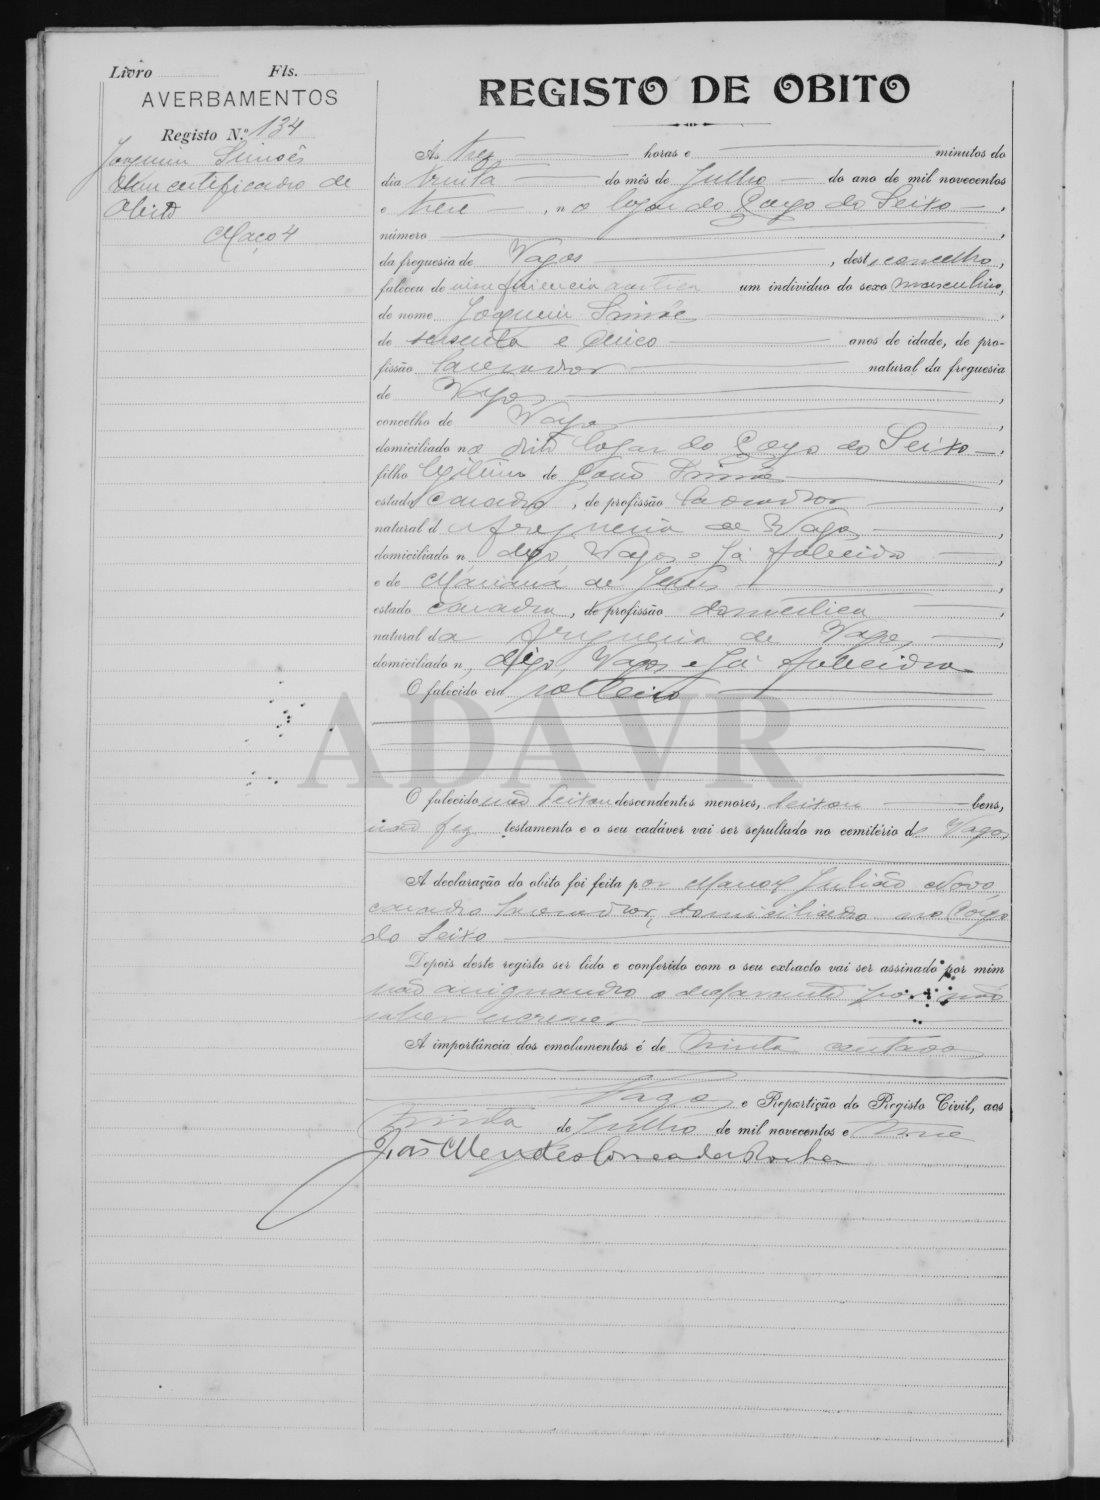 Livro Fls.
AVERBAMENTOS
Registo N.º 134
Joaquim Simões
Um certificado de
Obito
Maço 4
REGISTO DE OBITO
As tres horas e minutos do
dia trinta do mês de Julho do ano de mil novecentos
e treze, no logar do Corgo do Seixo,
número
da freguesia de Vagos, deste concelho,
faleceu de insuficiencia aortica um individuo do sexo masculino,
de nome Joaquim Simões
de sessenta e cinco anos de idade, de pro-
fissão lavrador natural da freguesia
de Vagos,
concelho de Vagos,
domiciliado no dito logar do Corgo do Seixo,
filho legitimo de João Simões,
estado casado, de profissão lavrador,
natural da freguesia de Vagos,
domiciliado n digo Vagos e já falecido
e de Mariana de Jesus,
estado casada, de profissão domestica,
natural da freguesia de Vagos,
domiciliado n, digo, Vagos e já falecida
O falecido era solteiro
ADAVR
O falecido não deixou descendentes menores, deixou bens,
não fez testamento e o seu cadáver vai ser sepultado no cemitério de Vagos
A declaração do obito foi feita por Manoel Julião Novo,
casado lavrador, domiciliado no Corgo
do Seixo
Depois deste registo ser lido e conferido com o seu extracto vai ser assinado por mim
não assignando o declarante por não
saber escrever
A importância dos emolumentos é de trinta centavos
Vagos e Repartição do Registo Civil, aos
trinta de Julho de mil novecentos e treze
João Mendes Correa da Rocha